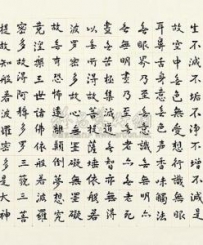 生不滅不垢不淨不增不減是
故空中無色無受想行識無眼
耳鼻舌身意無色聲香味觸法
無眼界乃至無意識界無無明
亦無無明盡乃至無老死
以無所得故菩提薩埵依般若
波羅蜜多故心無罣礙無罣礙
故無有恐怖遠離顛倒夢想究
竟涅槃三世諸佛依般若波羅
蜜多故得阿耨多羅三藐三菩
提故知般若波羅蜜多是大神